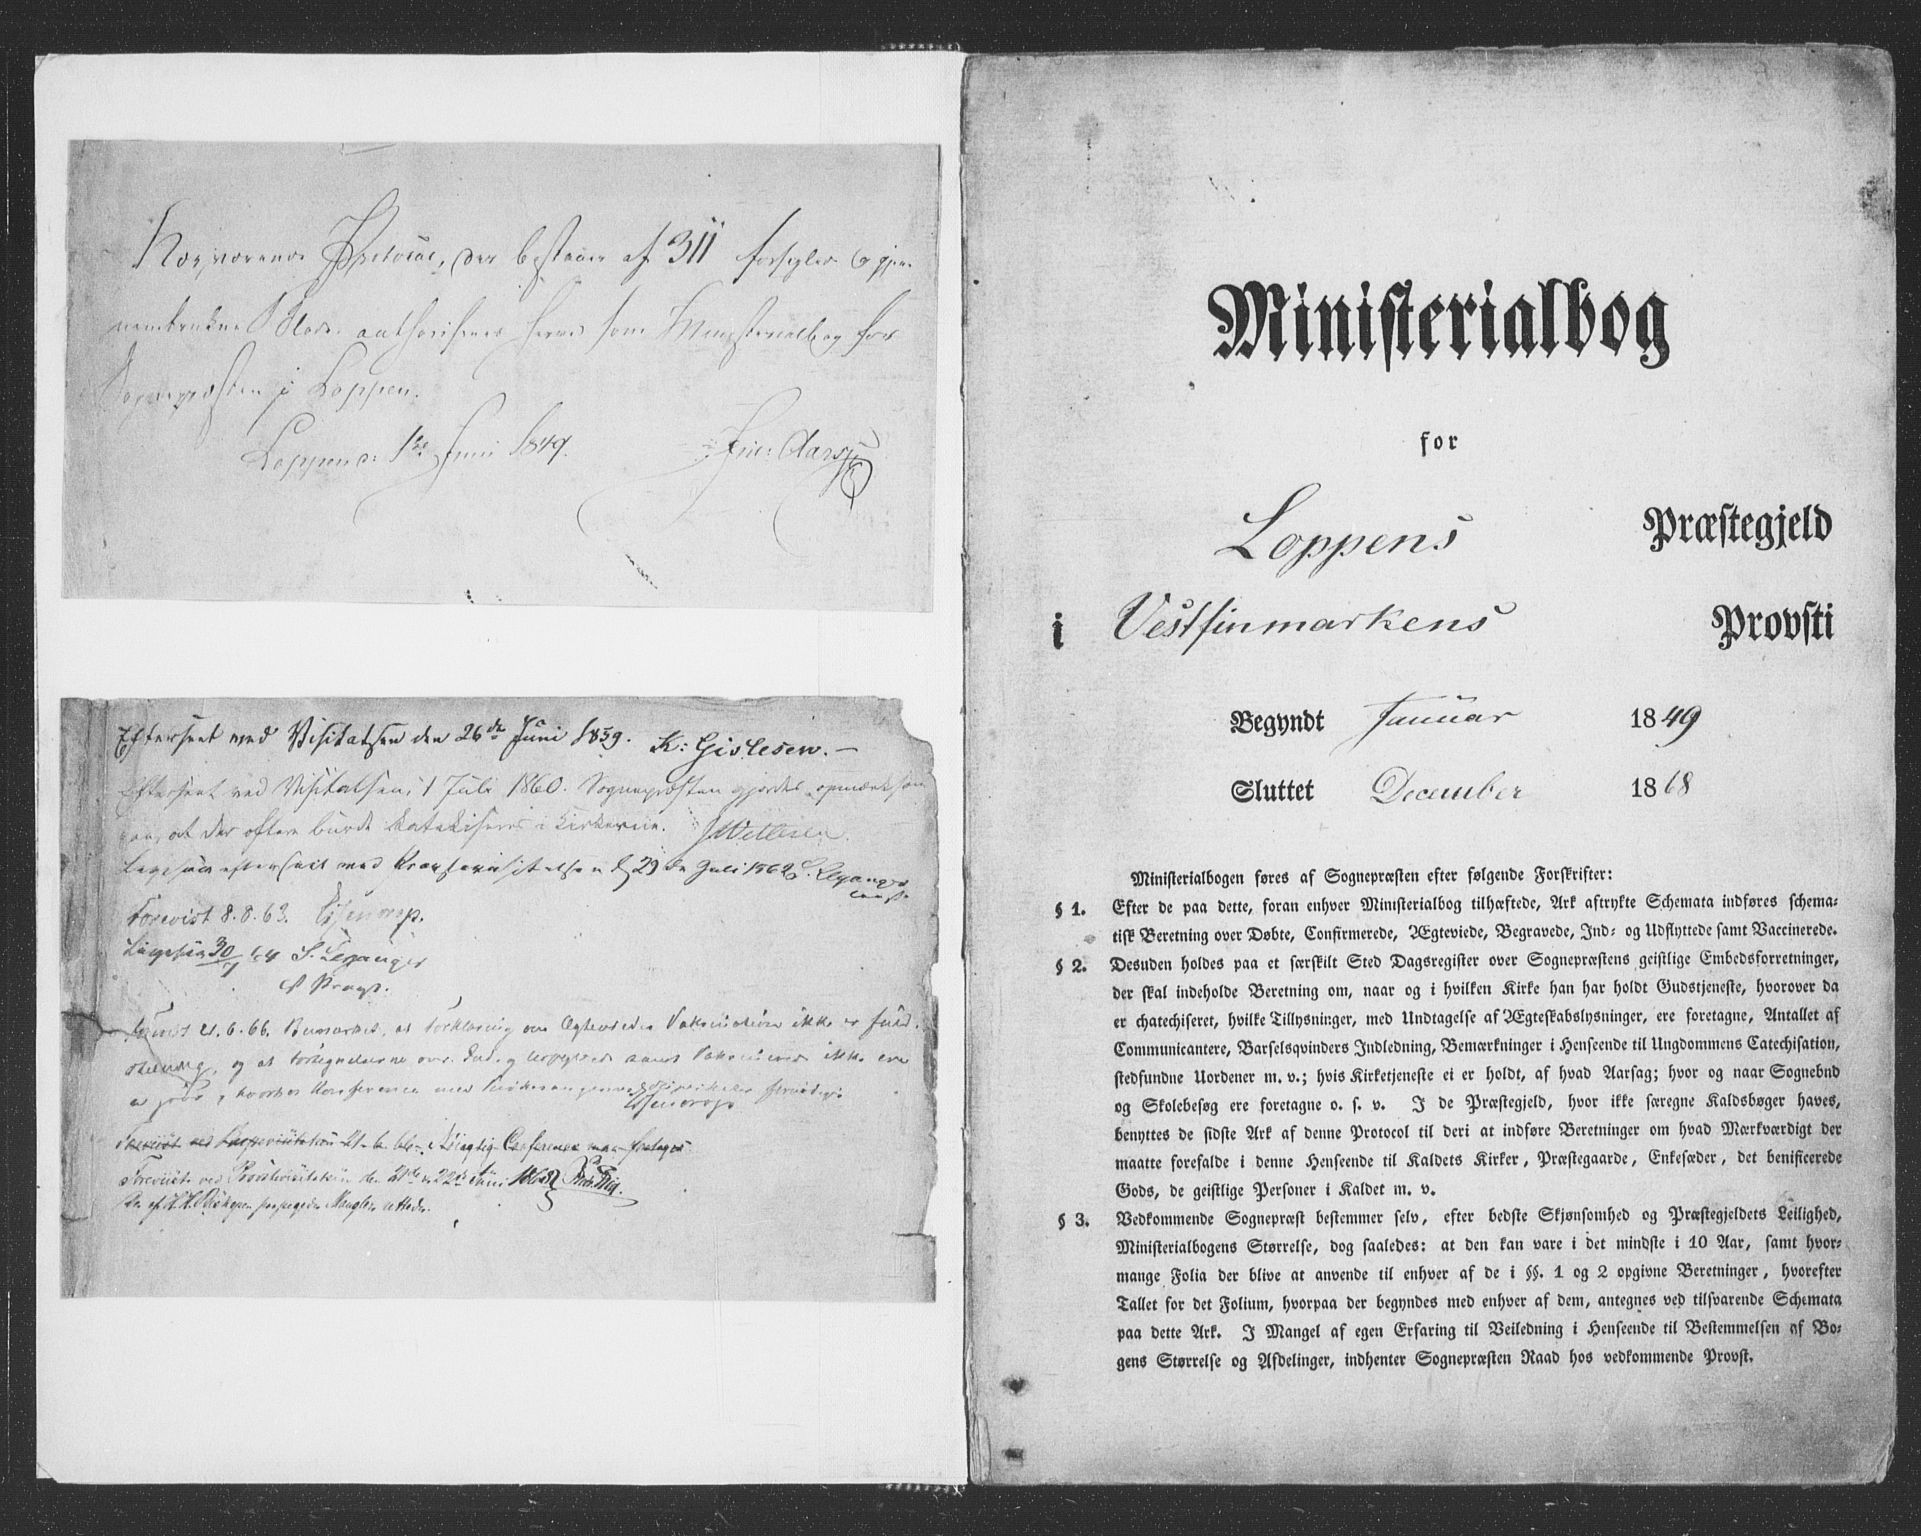 Nærværende Protocol, der bestaaer af 311 forseglede og gjen-
nemtrukne Blade authoriseres herved som Ministerialbog for
Sognepræsten i Loppen.
Loppen d: 1ste Juni 1849. Aars
Efterseet ved Visitatsen den 26de Juni 1859. K: Gislesen. –
Efterseet ved Visitatsen, 1 Juli 1860. Sognepræsten gjordes opmærksom
paa, at der oftere burde katekiseres i Kirkerne. JWetlesen.
efterseet ved Provstevisitatsen d 29de Juli 1862 S. Leganger
const.
Forevist 8.8.63.
Ligesaa 30/7 64 S. Leganger
c Provst.
21.6.66. Bemærket, at Forklaring om Ægteviedes Vaksination ikke er fuld-
stændig, og at Fortegnelserne over Ind- og Udflyttede samt Vaksinerede ikke ere
Konference med
Forevist ved 21.6. Conference maa foretages
Forevist ved Provstevisitatsen den 21de & 22de Juni 1868
De af paapegede Mangler rettede.
Ministerialbog
for
Loppens Præstegjeld
i Vestfinmarkens Provsti
Begyndt Januar 1849
Sluttet December 1868
Ministerialbogen føres af Sognepræsten efter følgende Forskrifter:
§ 1. Efter de paa dette, foran enhver Ministerialbog tilhæftede, Ark aftrykte Schemata indføres schema-
tisk Beretning over Døbte, Confirmerede, Ægteviede, Begravede, Ind- og Udflyttede samt Vaccinerede.
§ 2. Desuden holdes paa et særskilt Sted Dagsregister over Sognepræstens geistlige Embedsforretninger,
der skal indeholde Beretning om, naar og i hvilken Kirke han har holdt Gudstjeneste, hvorover da
er chatechiseret, hvilke Tillysninger, med Undtagelse af Ægteskabslysninger, ere foretagne, Antallet af
Communicantere, Barselsqvinders Indledning, Bemærkninger i Henseende til Ungdommens Catechisation,
stedfundne Uordener m. v.; hvis Kirketjeneste ei er holdt, af hvad Aarsag; hvor og naar Sognebud
og Skolebesøg ere foretagne o. s. v. I de Præstegjeld, hvor ikke særegne Kaldsbøger haves,
benyttes de sidste Ark af denne Protocol til deri at indføre Beretninger om hvad Mærkværdigt der
maatte forefalde i denne Henseende til Kaldets Kirker, Præstegaarde, Enkesæder, det benificerede
Gods, de geistlige Personer i Kaldet m. v.
§ 3. Vedkommende Sognepræst bestemmer selv, efter bedste Skjønsomhed og Præstegjeldets Leilighed,
Ministerialbogens Størrelse, dog saaledes: at den kan vare i det mindste i 10 Aar, samt hvor-
mange Folia der blive at anvende til enhver af de i §§. 1 og 2 opgivne Beretninger, hvorefter
Tallet for det Folium, hvorpaa der begyndes med enhver af dem, antegnes ved tilsvarende Schemata
paa dette Ark. I Mangel af egen Erfaring til Veiledning i Henseende til Bestemmelsen af Bo-
gens Størrelse og Afdelinger, indhenter Sognepræsten Raad hos vedkommende Provst.